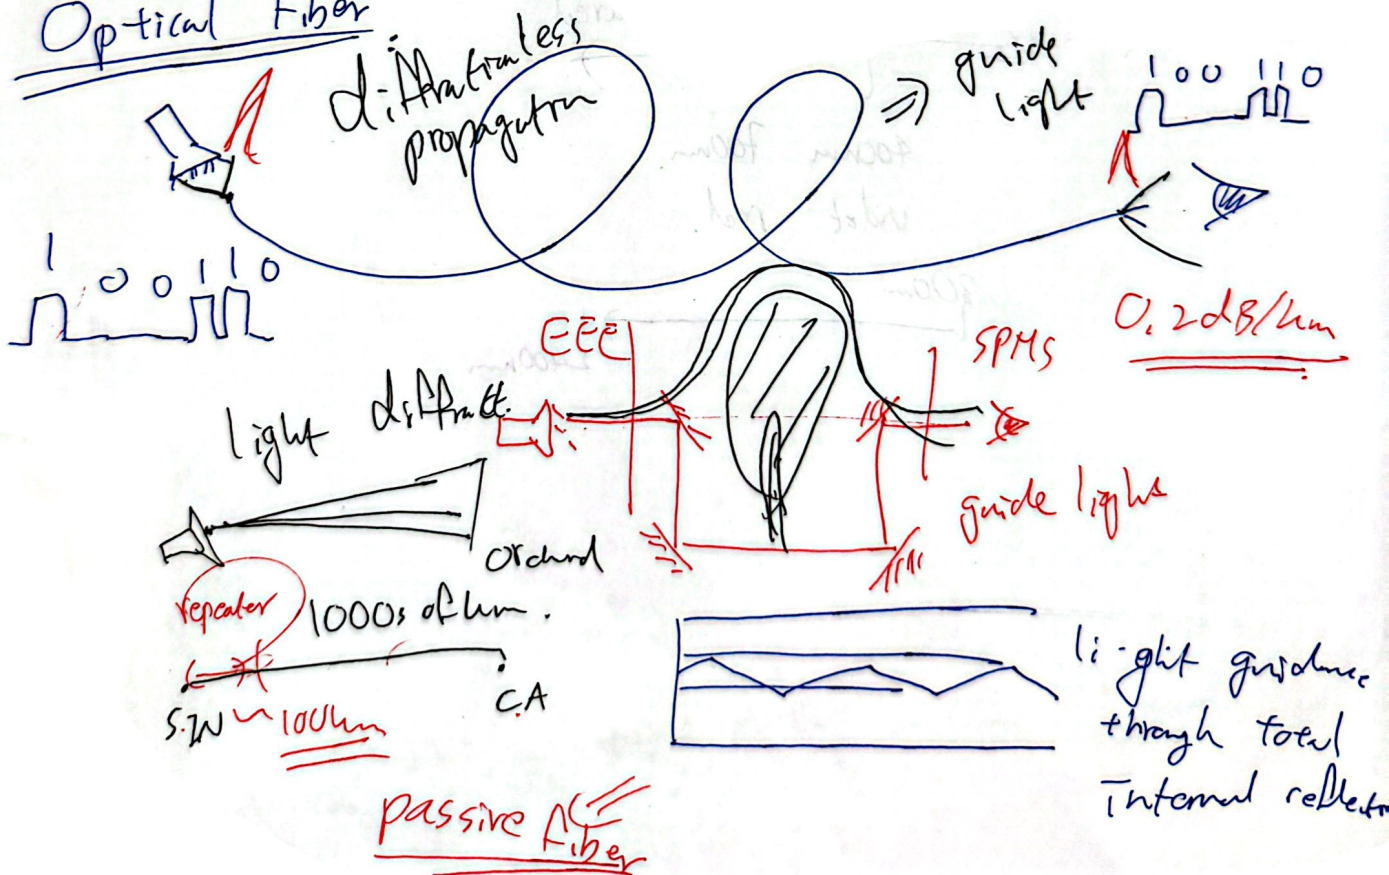 Optical Fiber
diffractionless
propagation
guide
light
1 0 0 1 1 0
1 0 0 1 1 0
0.2dB/km
EEE
SPMS
light diffract.
guide light
Orchard
repeater
1000s of km.
S.IN ~ 100km
C.A
light guidance
through total
internal reflection
passive fiber